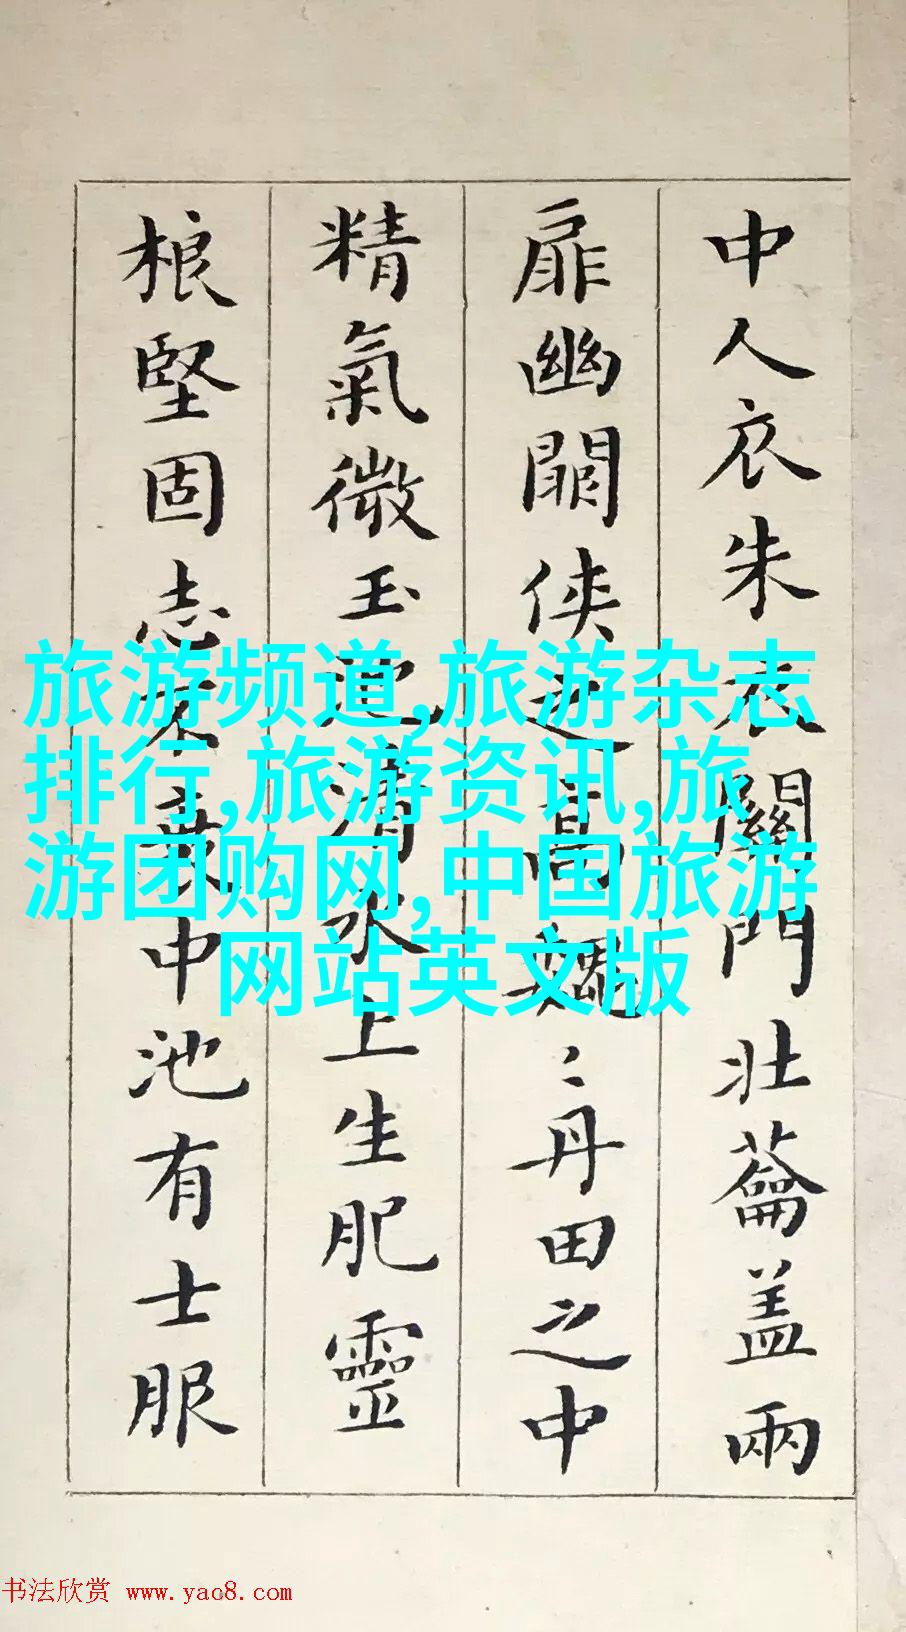 中人衣朱衣關門壯蘥盖兩
扉幽闕俠之高巍〻丹田之中
精氣微玉池清水上生肥靈
根堅固志不衰中池有士服
旅游频道,旅游杂志
排行,旅游资讯,旅
游团购网,中国旅游
网站英文版
书法欣赏 www.yac8.com